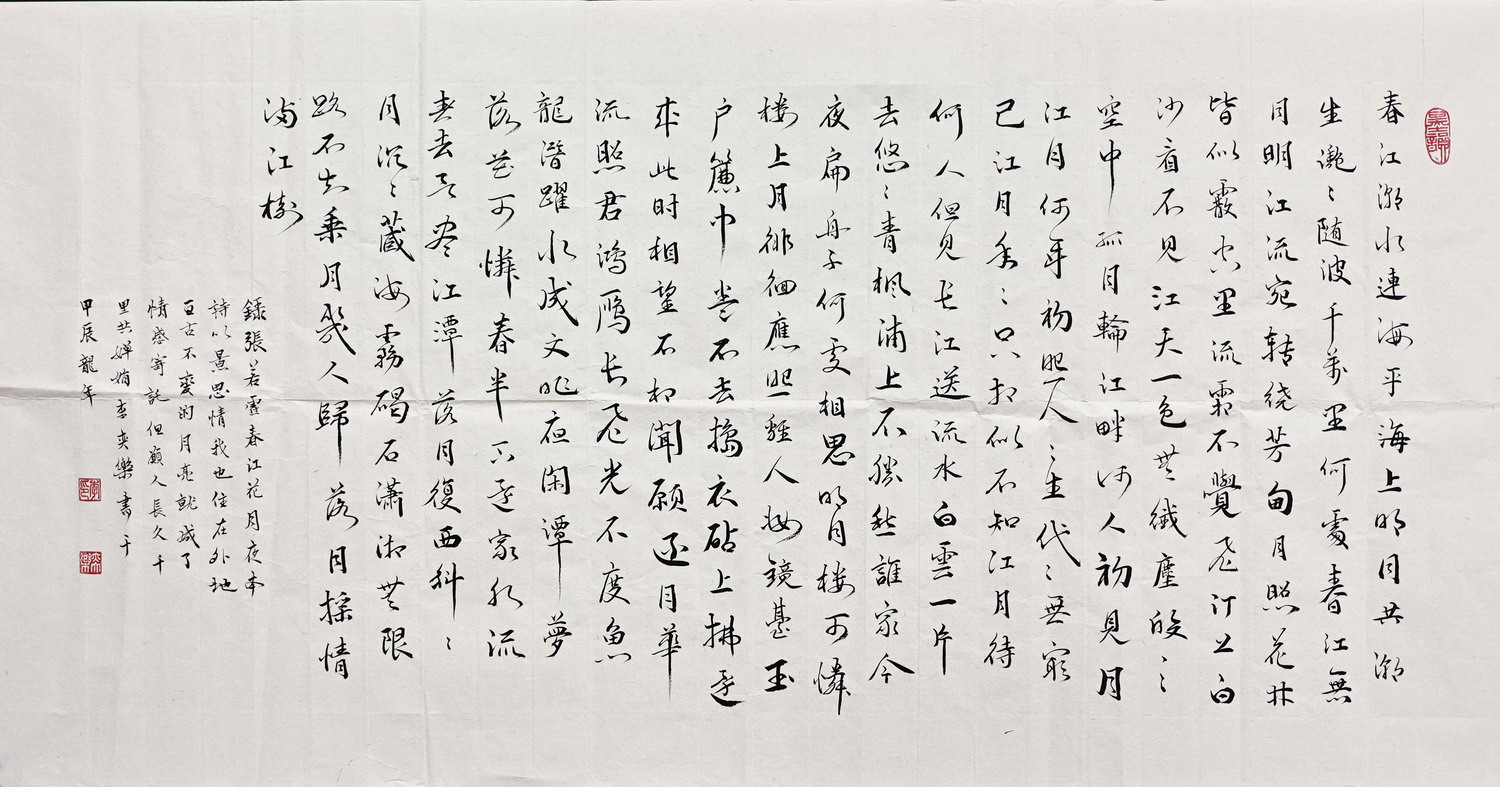 春江潮水連海平海上明月共潮
生灔〻随波千萬里何處春江無
月明江流宛转绕芳甸月照花林
皆似霰空里流霜不覺飛汀上白
沙看不見江天一色無纖塵皎〻
空中孤月輪江畔何人初見月
江月何年初照人〻生代〻無窮
已江月年〻只相似不知江月待
何人但見長江送流水白雲一片
去悠〻青楓浦上不勝愁誰家今
夜扁舟子何處相思明月楼可憐
楼上月徘徊應照離人妝鏡臺玉
户簾中卷不去擣衣砧上拂还
來此時相望不相聞願逐月華
流照君鴻雁長飛光不度魚
龍潛躍水成文昨夜閑潭夢
落花可憐春半不还家水流
春去欲尽江潭落月復西斜〻
月沉〻藏海霧碣石瀟湘無限
路不知乘月幾人歸落月摇情
满江樹
錄張若虛春江花月夜本
詩以景思情我也住在外地
亘古不變的月亮就成了
情感寄託但願人長久千
里共嬋娟李奕樂書于
甲辰龍年